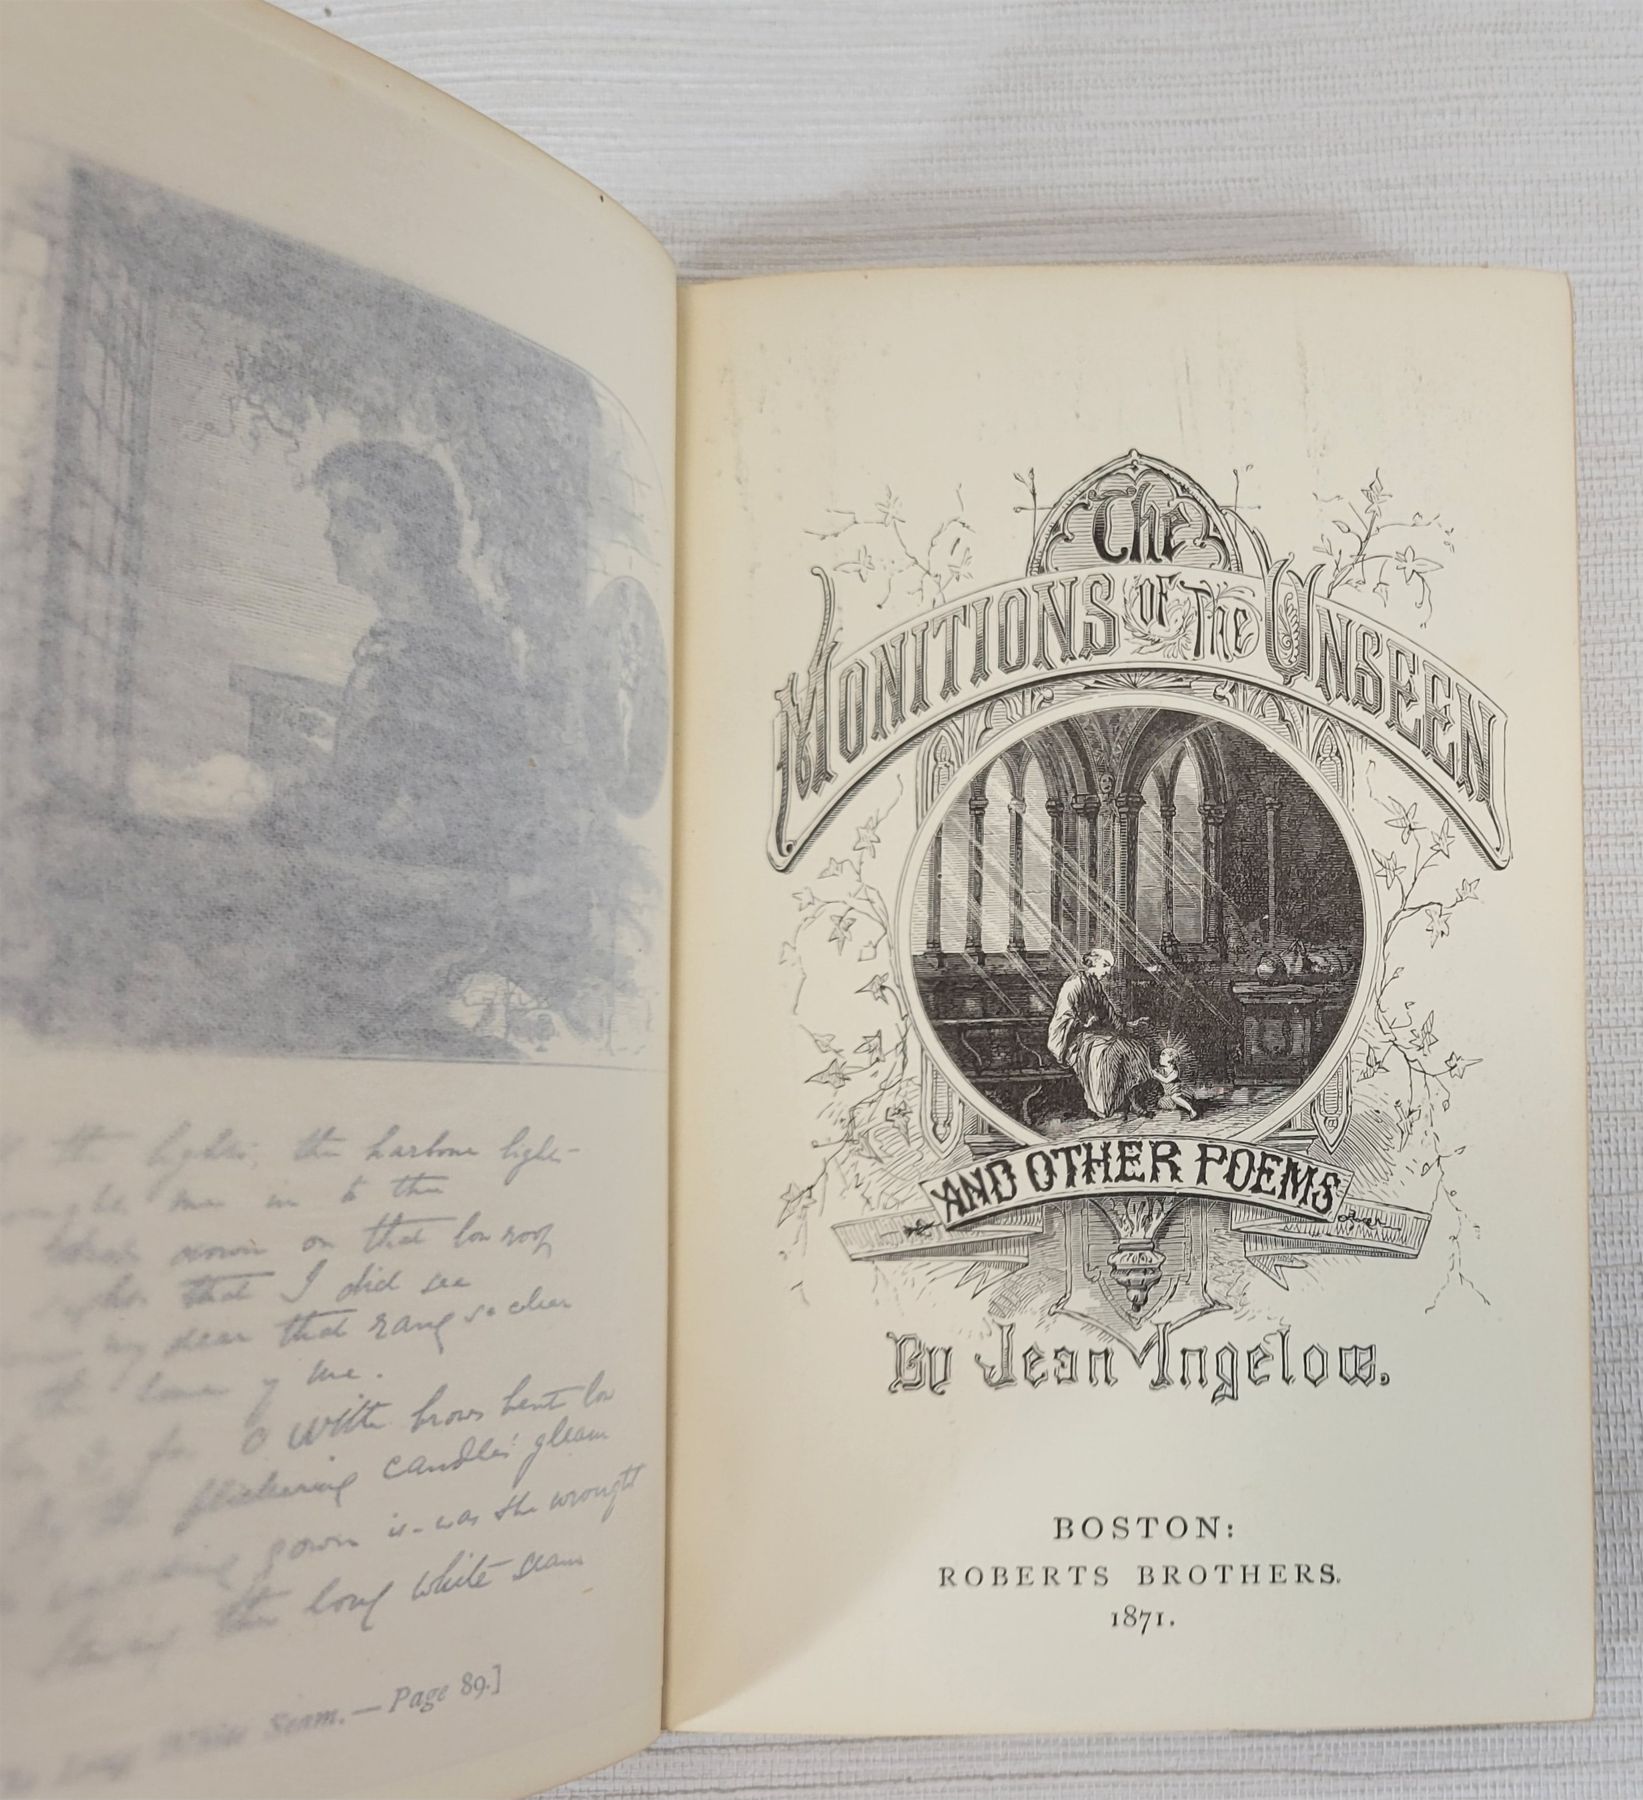 the lights, the harbour lights—
me in to the
down on that low roof
that I did see
my dear that rang so clear
the home of me.
O white brows bent low
flickering candles' gleam
gown it was she wrought
the long white seam
Long White Seam.—Page 89.]
The
MONITIONS OF The UNSEEN
AND OTHER POEMS
By Jean Ingelow.
BOSTON:
ROBERTS BROTHERS.
1871.